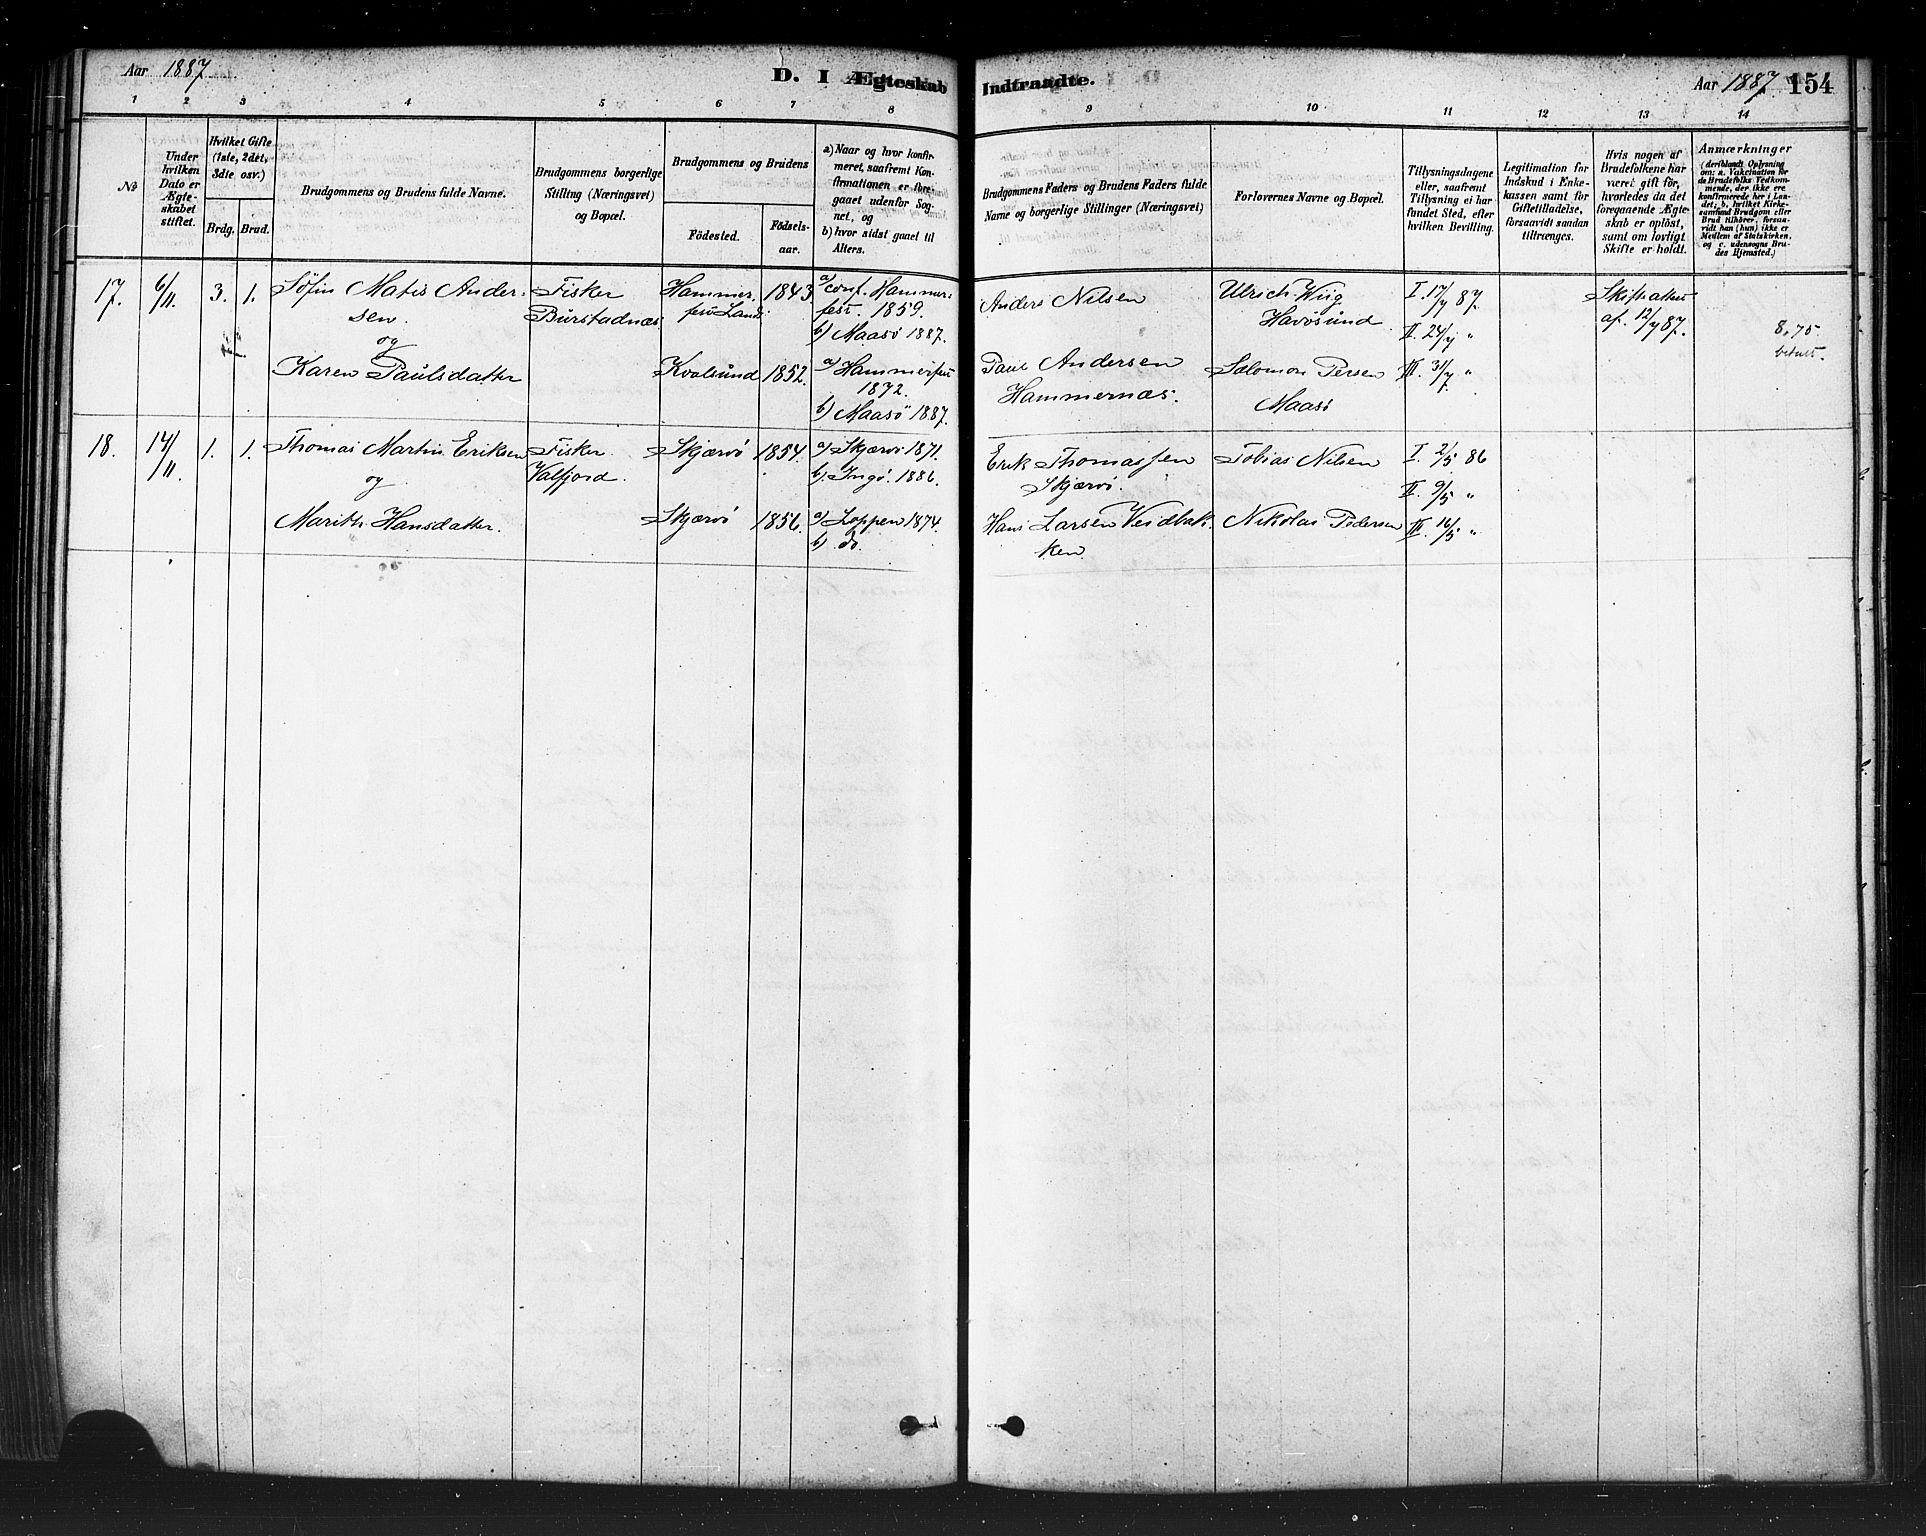 Aar 1887
D. I Ægteskab Indtraadte.
Aar 1887 154
1 2 3 4 5 6 7 8 9 10 11 12 13 14
No
Under hvilken Dato er Ægteskabet stiftet.
Hvilket Gifte (1ste, 2det, 3die osv.)
Brdg. Brud.
Brudgommens og Brudens fulde Navne.
Brudgommens borgerlige Stilling (Næringsvei) og Bopæl.
Brudgommens og Brudens
Födested.
Födselsaar.
a) Naar og hvor konfirmeret, saafremt Konfirmationen er foregaaet udenfor Sognet, og
b) hvor sidst gaaet til Alters.
Brudgommens Faders og Brudens Faders fulde Navne og borgerlige Stillinger (Næringsvei)
Forlovernes Navne og Bopæl.
Tillysningsdagene eller, saafremt Tillysning ei har fundet Sted, efter hvilken Bevilling.
Legitimation for Indskud i Enkekassen samt for Giftetilladelse, forsaavidt saadan tiltrænges.
Hvis nogen af Brudefolkene har været gift för, hvorledes da det foregaaende Ægteskab er oplöst, samt om lovligt Skifte er holdt.
Anmærkninger
(deriblandt Oplysning om: a. Vakcination for de Brudefolks Vedkommende, der ikke ere konfirmerede her i Landet, b. hvilket Kirkesamfund Brudgom eller Brud tilhörer, forsaavidt han (hun) ikke er Medlem af Statskirken, og c. udensogns Brudes Hjemsted.)
17. 6/11. 3. 1. Söfin Matis Andersen. Fisker Burstadnæs Hammerfest Land. 1843. a) conf. Hammerfest. 1859. b) Maasö 1887. Anders Nilsen Ulrich Wiig Havösund. I. 17/7 87. II. 24/7 " Skifteattest af 12/7 87. 8,75 betalt.
og
Karen Paulsdatter Kvalsund 1852. a) Hammerfest 1872. b) Maasö 1887. Paul Andersen Hammernæs. Salomon Persen Maasö III. 31/7 "
18. 14/11. 1. 1. Thomas Martin Eriksen Fisker Valfjord. Skjærvö 1854. a) Skjærvö 1871. b) Ingö. 1886. Erik Thomassen Skjærvö. Tobias Nilsen I. 2/5 86 II. 9/5 "
og
Marith Hansdatter. Skjærvö 1856. a) Loppen 1874. b) do. Hans Larsen Veidbakken. Nikolas Pedersen III. 16/5 "